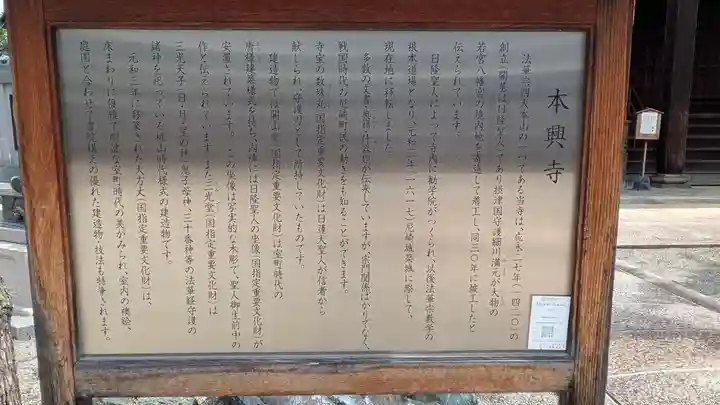 本興寺
法華宗四大本山の一つである当寺は、応永二七年(一四二〇)の
創立(開基は日隆聖人)であり摂津国守護細川満元が大物の
若宮八幡宮の境内地を寄進して着工し、同三〇年に竣工したと
伝えられています。
日隆聖人によって寺内に勧学院がつくられ、以後法華宗教学の
根本道場となり、元和三年(一六一七)尼崎城築城に際して、
現在地に移転しました。
多数の文書(県指定文化財)が伝来していますが、宗門関係ばかりでなく、
戦国時代の尼崎町民の動きをも知ることができます。
寺宝の数珠丸(国指定重要文化財)は日蓮大聖人が信者から
献じられ、守護刀として所持していたものです。
建造物では開山堂(国指定重要文化財)は室町時代の
唐様建築様式を持ち、内陣には日隆聖人の坐像(国指定重要文化財)が
安置されています。この坐像は写実的な木彫で、聖人御生前中の
作と伝えられています。また三光堂(国指定重要文化財)は
三光天子(日・月・星の神)、鬼子母神、三十番神等の法華経守護の
諸神を祀っている桃山時代様式の建造物です。
元和三年に移築された大方丈(国指定重要文化財)は、
床まわりに簡雅で剛健な室町時代の美がみられ、室内の襖絵、
庭園と合わせて書院構えの優れた建造物で技法も特筆されます。